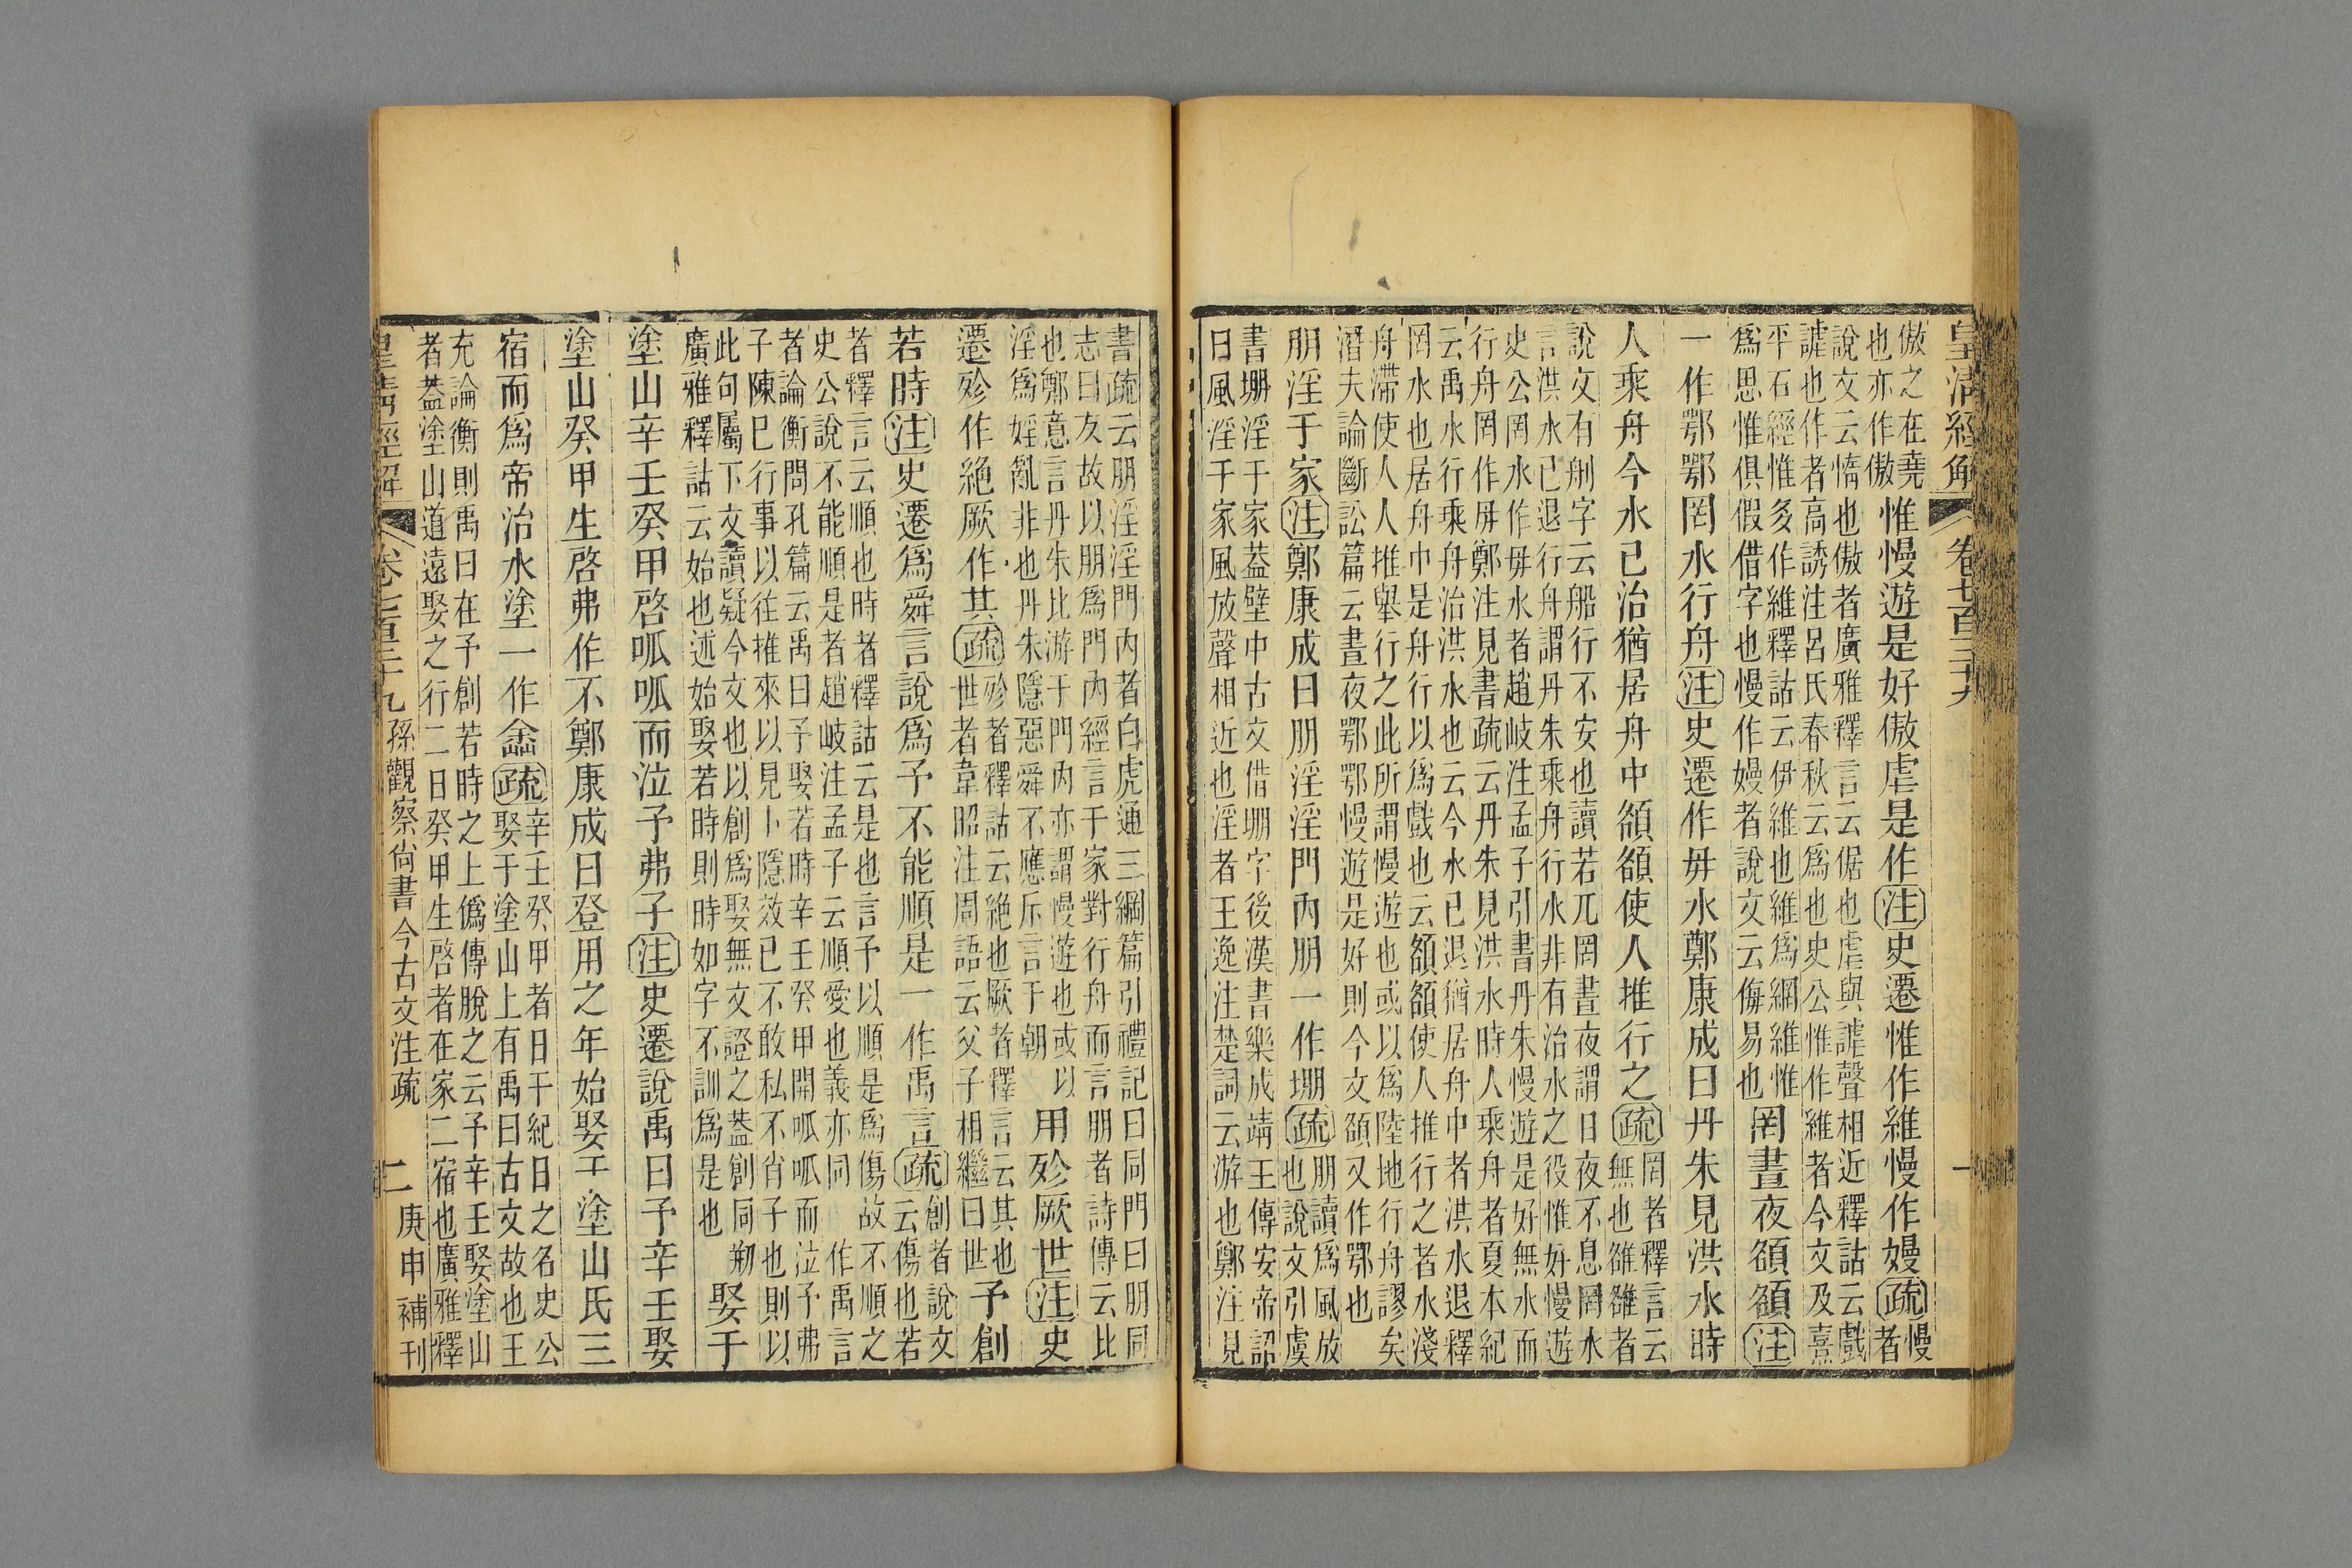 皇清經解 卷七百三十九 一
傲之在堯
也亦作傲
惟慢遊是好傲虐是作注史遷惟作維慢作嫚疏慢
者
說文云惰也傲者廣雅釋言云倨也虐與謔聲相近釋詁云戲
謔也作者高誘注呂氏春秋云爲也史公惟作維者今文及熹
平石經惟多作維釋詁云伊維也維爲綱維惟
爲思惟俱假借字也慢作嫚者說文云侮易也
罔晝夜頟頟注
一作鄂鄂罔水行舟注史遷作毋水鄭康成曰丹朱見洪水時
人乘舟今水已治猶居舟中頟頟使人推行之疏罔者釋言云
無也雒雒者
說文有刖字云船行不安也讀若兀罔晝夜謂日夜不息罔水
言洪水已退行舟謂丹朱乘舟行水非有治水之役惟好慢遊
史公罔水作毋水者趙岐注孟子引書丹朱慢遊是好無水而
行舟罔作毋鄭注見書疏云丹朱見洪水時人乘舟者夏本紀
云禹水行乘舟治洪水也云今水已退猶居舟中者洪水退釋
罔水也居舟中是舟行以爲戲也云頟頟使人推行之者水淺
舟滯使人人推舉行之此所謂慢遊也或以爲陸地行舟謬矣
潛夫論斷訟篇云晝夜鄂鄂慢遊是好則今文頟又作鄂也
朋淫于家注鄭康成曰朋淫淫門內朋一作堋疏朋讀爲風放
也說文引虞
書堋淫于家蓋壁中古文借堋字後漢書樂成靖王傳安帝詔
曰風淫于家風放聲相近也淫者王逸注楚詞云游也鄭注見
書疏云朋淫淫門內者白虎通三綱篇引禮記曰同門曰朋同
志曰友故以朋爲門內經言于家對行舟而言朋者詩傳云比
也鄭意言丹朱比游于門內亦謂慢遊也或以
淫爲婬亂非也丹朱隱惡舜不應斥言于朝
用殄厥世注史
遷殄作絕厥作其疏殄者釋詁云絕也厥者釋言云其也
世者韋昭注周語云父子相繼曰世
予創
若時注史遷爲舜言說爲予不能順是一作禹言疏創者說文
云傷也若
者釋言云順也時者釋詁云是也言予以順是爲傷故不順之
史公說不能順是者趙岐注孟子云順愛也義亦同作禹言
者論衡問孔篇云禹曰予娶若時辛壬癸甲開呱呱而泣予弗
子陳已行事以往推來以見卜隱效已不敢私不肖子也則以
此句屬下文讀疑今文也以創爲娶無文證之蓋創同刱
廣雅釋詁云始也述始娶若時則時如字不訓爲是也
娶于
塗山辛壬癸甲啓呱呱而泣予弗子注史遷說禹曰予辛壬娶
塗山癸甲生啓弗作不鄭康成曰登用之年始娶于塗山氏三
宿而爲帝治水塗一作嵞疏辛壬癸甲者日干紀日之名史公
娶于塗山上有禹曰古文故也王
充論衡則禹曰在予創若時之上僞傳脫之云予辛壬娶塗山
者蓋塗山道遠娶之行二日癸甲生啓者在家二宿也廣雅釋
皇清經解 卷七百三十九 孫觀察尚書今古文注疏 二 庚申補刊